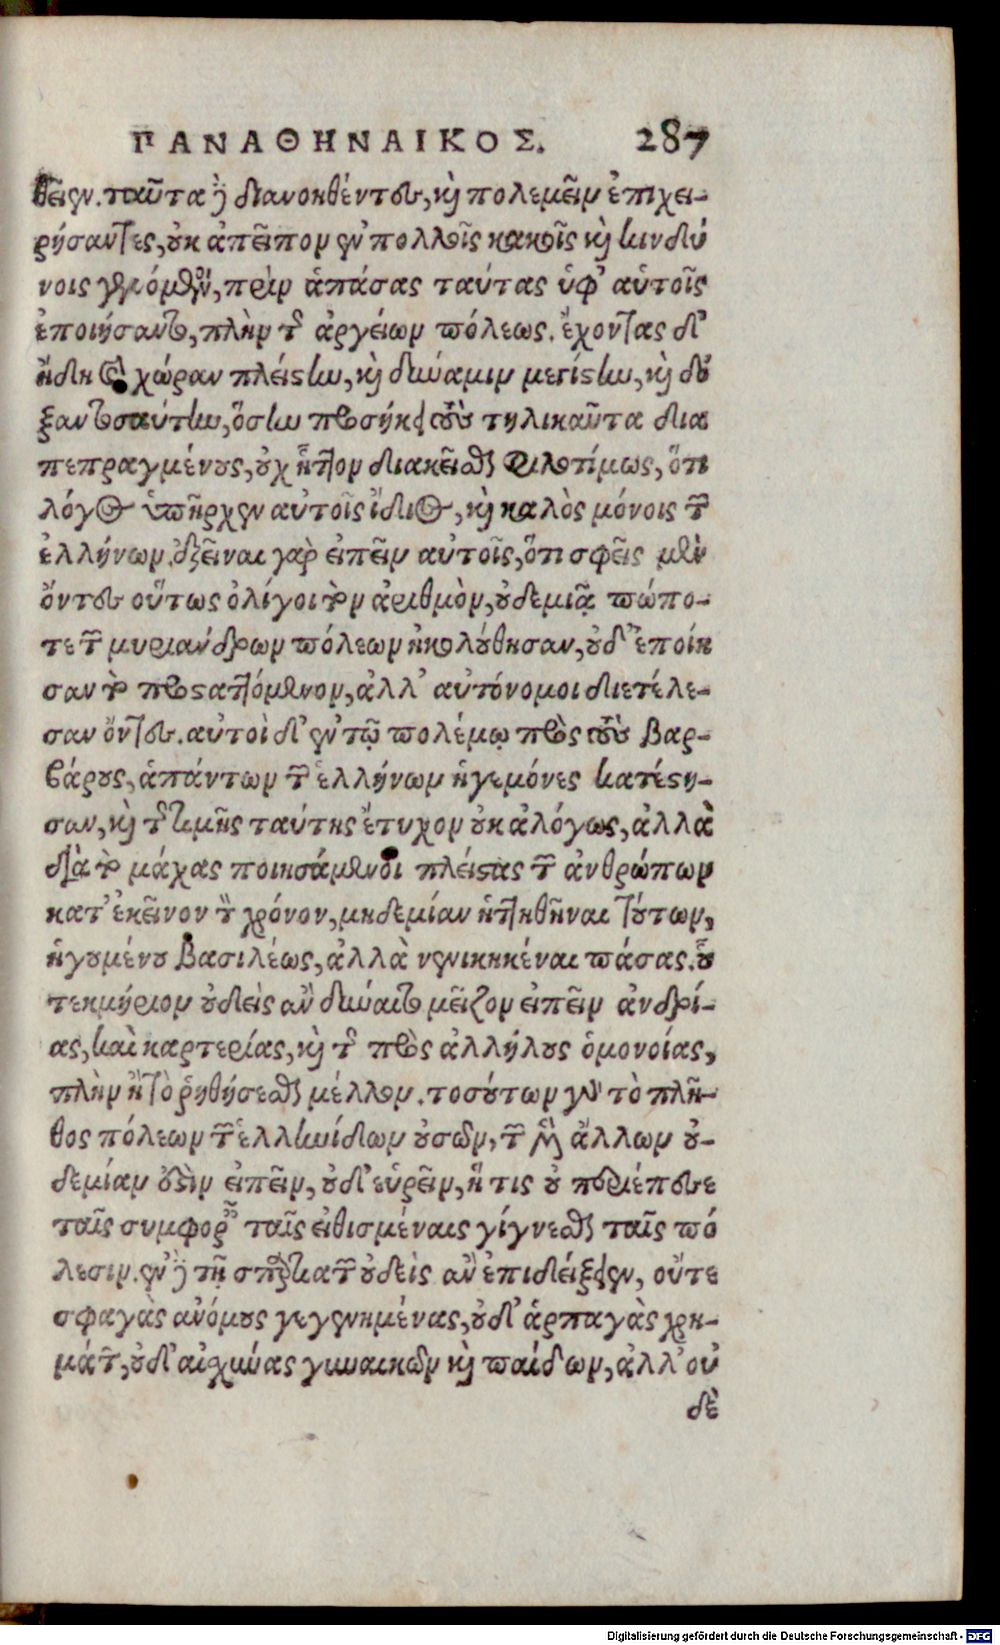 ΠΑΝΑΘΗΝΑΙΚΟΣ. 287
θεῖεν. ταῦτα δὲ διανοηθέντες, καὶ πολεμεῖν ἐπιχει-
ρήσαντες, οὐκ ἀπεῖπον ἐν πολλοῖς κακοῖς καὶ κινδύ
νοις γιγνόμενοι, πρὶν ἁπάσας ταύτας ὑφ' αὑτοῖς
ἐποιήσαντο, πλὴν τῆς ἀργείων πόλεως. ἔχοντας δ'
ἤδη καὶ χώραν πλείστην, καὶ δύναμιν μεγίστην, καὶ δό
ξαν τοσαύτην, ὅσην προσήκει τοὺς τηλικαῦτα δια
πεπραγμένους, οὐχ ἧττον διακεῖσθαι φιλοτίμως, ὅτι
λόγος ὑπῆρχεν αὐτοῖς ἴδιος, καὶ καλὸς μόνοις τῶν
ἑλλήνων. ἐξεῖναι γὰρ εἰπεῖν αὐτοῖς, ὅτι σφεῖς μὲν
ὄντες οὕτως ὀλίγοι τὸν ἀριθμὸν, οὐδεμιᾷ πώπο-
τε τῶν μυριάνδρων πόλεων ἠκολούθησαν, οὐδ' ἐποίη
σαν τὸ προσταττόμενον, ἀλλ' αὐτόνομοι διετέλε-
σαν ὄντες. αὐτοὶ δ' ἐν τῷ πολέμῳ πρὸς τοὺς βαρ-
βάρους, ἁπάντων τῶν ἑλλήνων ἡγεμόνες κατέστη-
σαν, καὶ τῆς τιμῆς ταύτης ἔτυχον οὐκ ἀλόγως, ἀλλὰ
διὰ τὸ μάχας ποιησάμενοι πλείστας τῶν ἀνθρώπων
κατ' ἐκεῖνον τὸν χρόνον, μηδεμίαν ἡττηθῆναι τούτων,
ἡγουμένου βασιλέως, ἀλλὰ νενικηκέναι πάσας. οὗ
τεκμήριον οὐδεὶς ἂν δύναιτο μεῖζον εἰπεῖν ἀνδρί-
ας, καὶ καρτερίας, καὶ τῆς πρὸς ἀλλήλους ὁμονοίας,
πλὴν ἢ τὸ ῥηθήσεσθαι μέλλον. τοσούτων γὰρ τὸ πλῆ-
θος πόλεων τῶν ἑλληνίδων οὐσῶν, τῶν μὲν ἄλλων οὐ-
δεμίαν οἷόν εἰπεῖν, οὐδ' εὑρεῖν, ἥτις οὐ περιέπεσε
ταῖς συμφοραῖς ταῖς εἰθισμέναις γίγνεσθαι ταῖς πό
λεσιν. ἐν δὲ τῇ σπαρτιατῶν οὐδεὶς ἂν ἐπιδείξειεν, οὔτε
σφαγὰς ἀνόμους γεγενημένας, οὐδ' ἁρπαγὰς χρη-
μάτων, οὐδ' αἰσχύνας γυναικῶν καὶ παίδων, ἀλλ' οὐ
δὲ
Digitalisierung gefördert durch die Deutsche Forschungsgemeinschaft - DFG